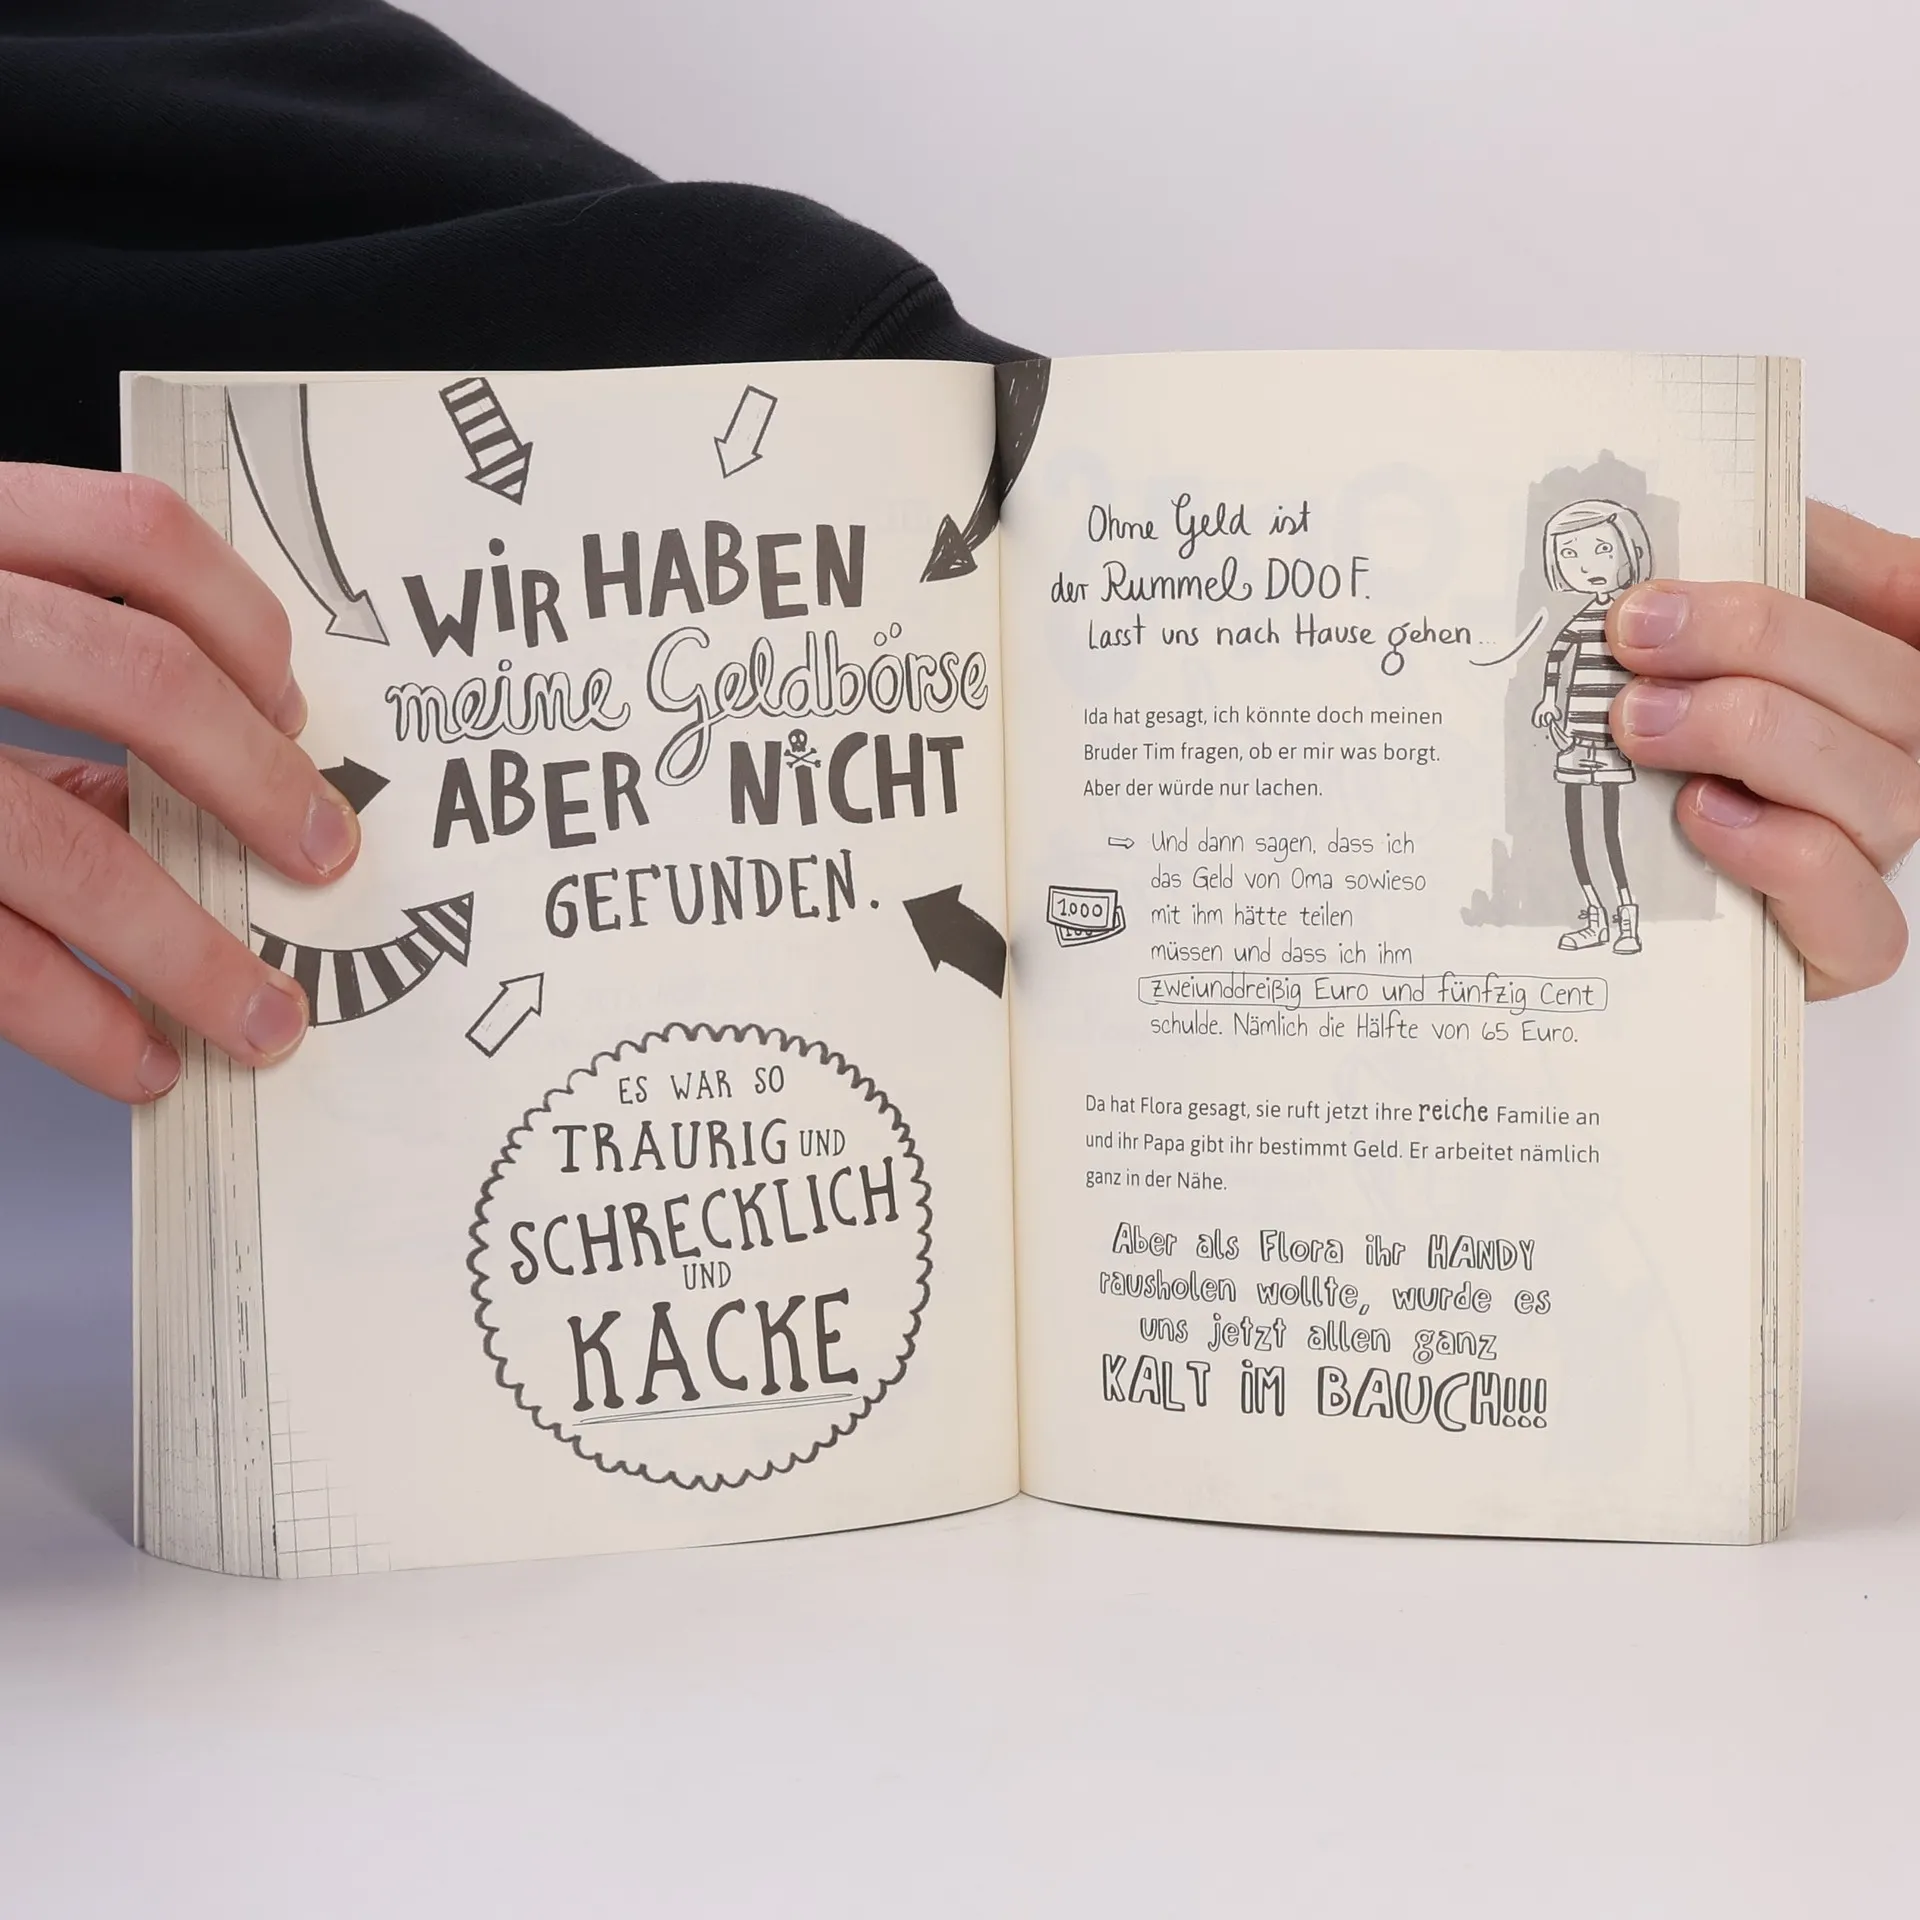 WIR HABEN
meine Geldbörse
ABER NICHT
GEFUNDEN.
ES WAR SO
TRAURIG UND
SCHRECKLICH
UND
KACKE
Ohne Geld ist
der Rummel DOOF.
Lasst uns nach Hause gehen...
Ida hat gesagt, ich könnte doch meinen
Bruder Tim fragen, ob er mir was borgt.
Aber der würde nur lachen.
⇨ Und dann sagen, dass ich
das Geld von Oma sowieso
mit ihm hätte teilen
müssen und dass ich ihm
zweiunddreißig Euro und fünfzig Cent
schulde. Nämlich die Hälfte von 65 Euro.
1.000
Da hat Flora gesagt, sie ruft jetzt ihre reiche Familie an
und ihr Papa gibt ihr bestimmt Geld. Er arbeitet nämlich
ganz in der Nähe.
Aber als Flora ihr HANDY
rausholen wollte, wurde es
uns jetzt allen ganz
KALT IM BAUCH!!!